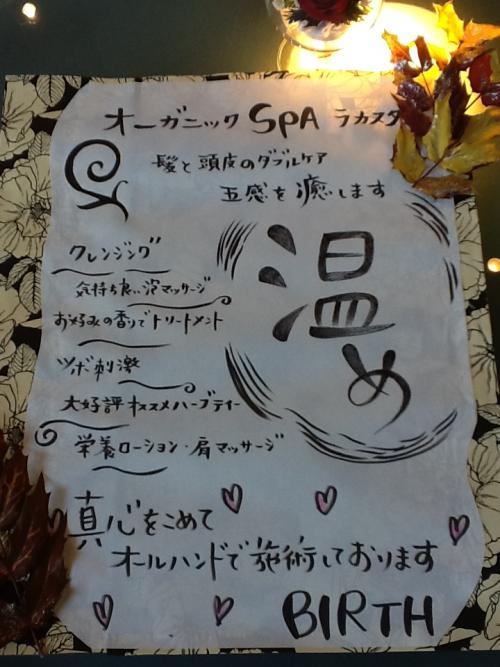 オーガニック SPA ラカスタ
髪と頭皮のダブルケア
五感を癒します
クレンジング
気持ち良い泡マッサージ
お好みの香りでトリートメント
ツボ刺激
大好評オススメハーブティー
栄養ローション・肩マッサージ
温め
真心をこめて
オールハンドで施術しております
BIRTH